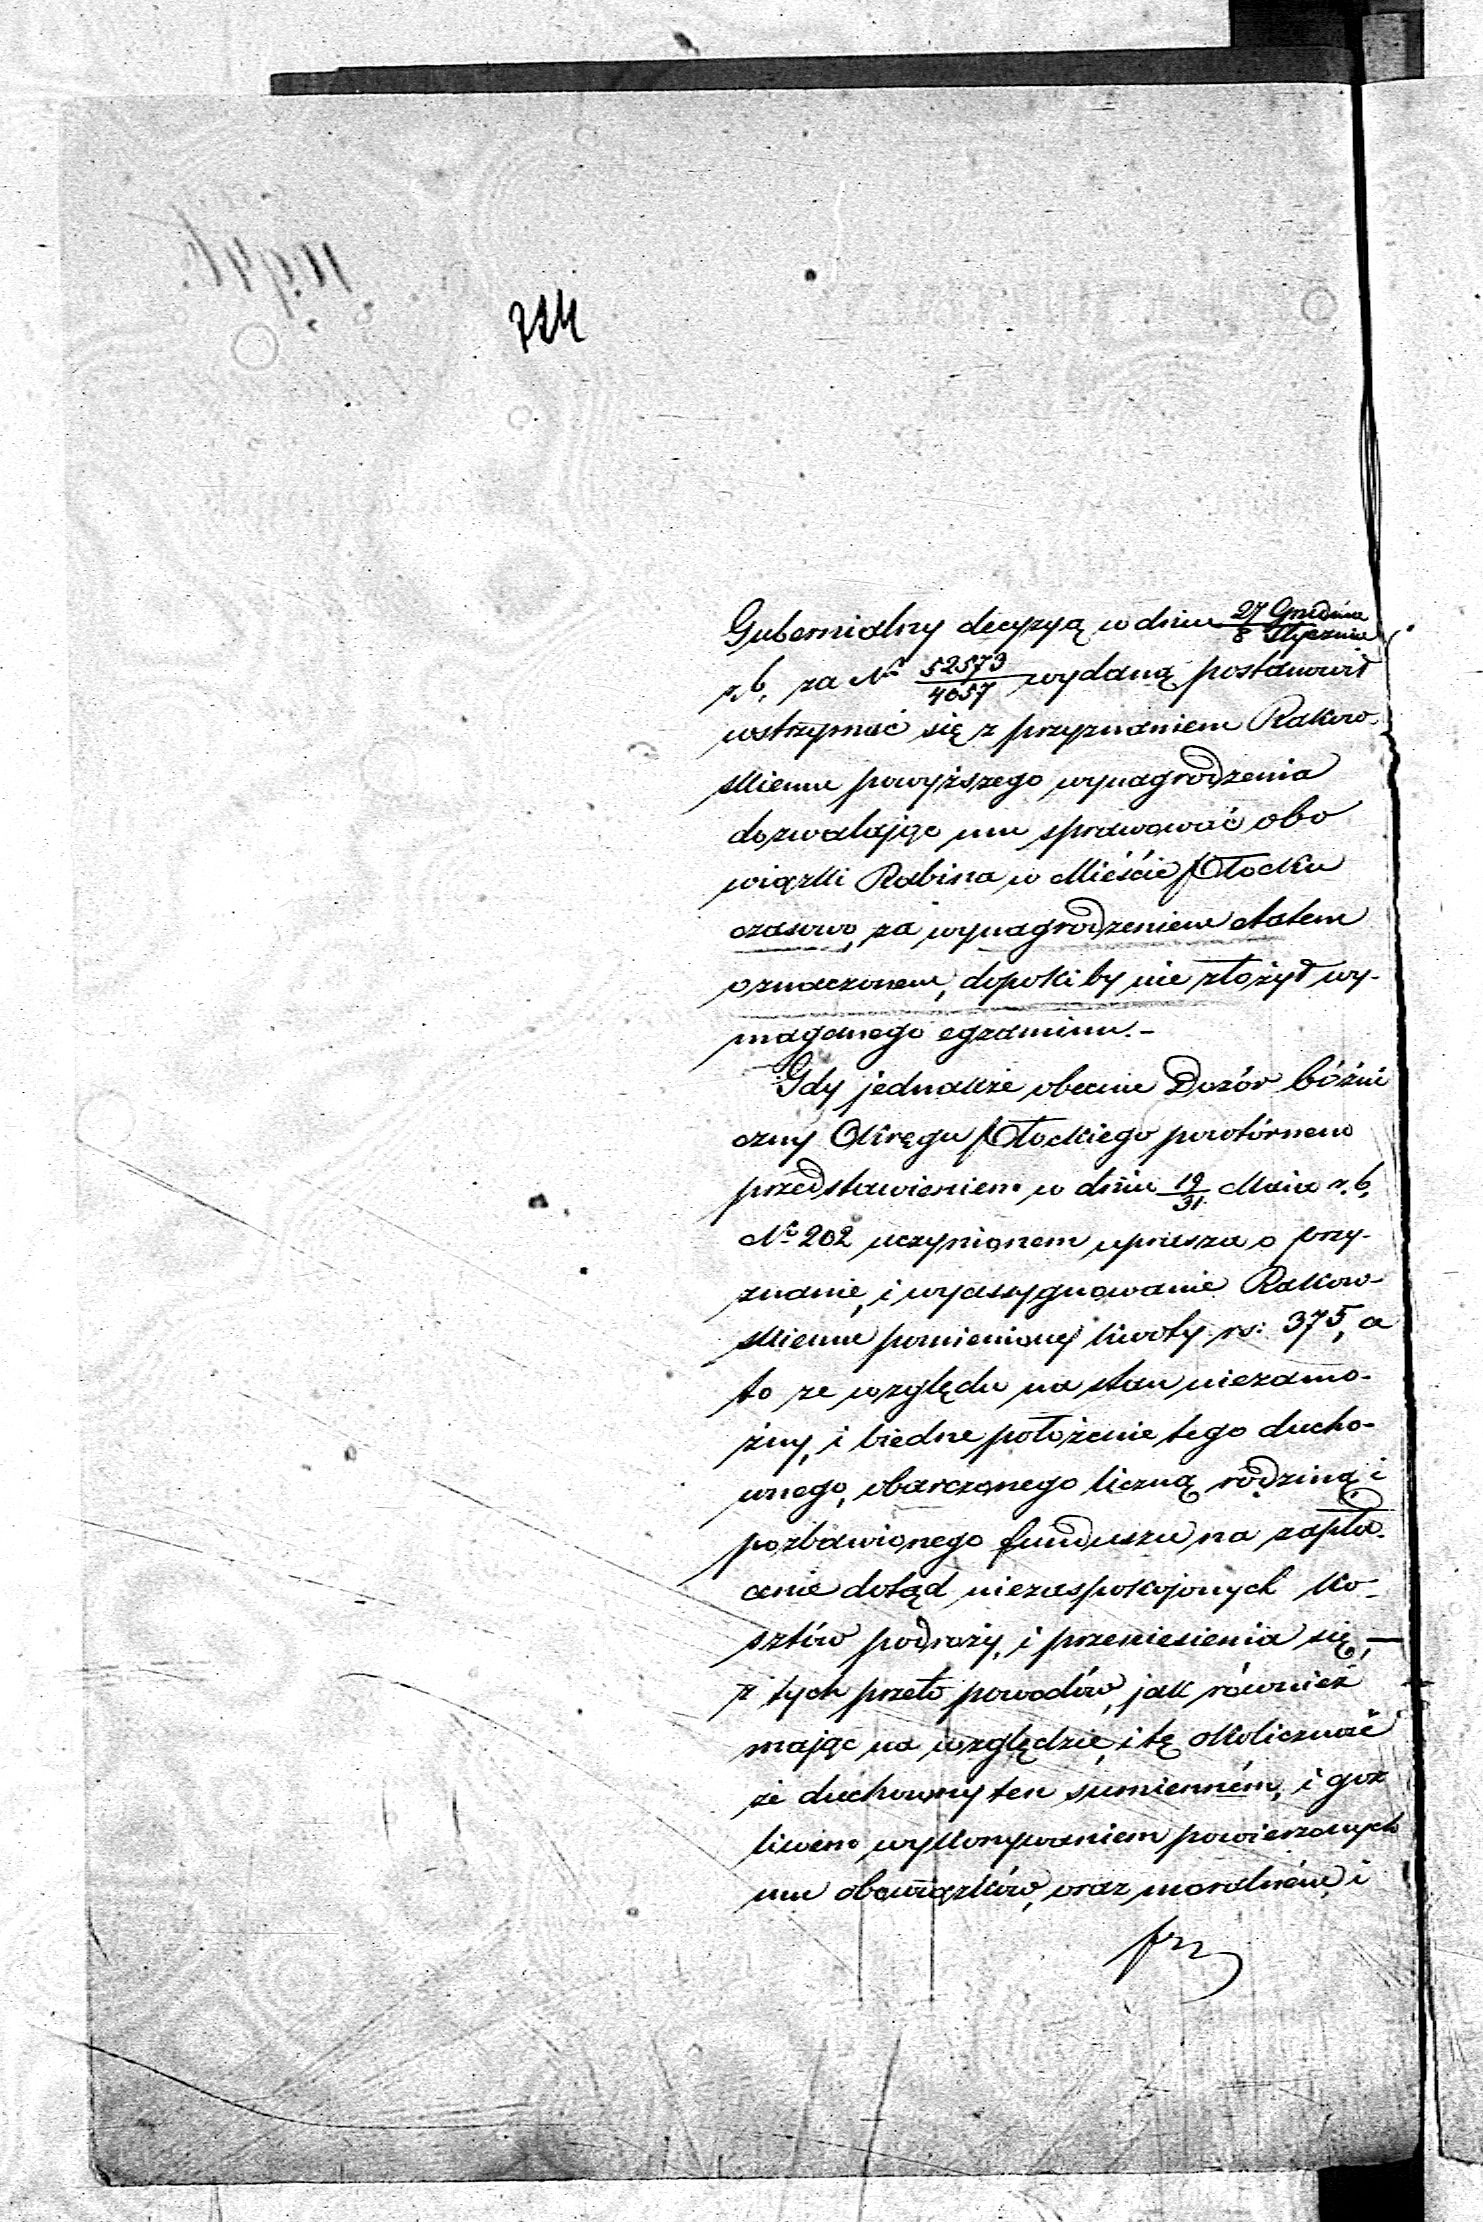 724
Gubernialny decyzyą w dniu 27 Grudnia / 8 Stycznia
r.b. za № 52573/4057 wydaną postanowił
wstrzymać się z przyznaniem Rakow-
skiemu powyższego wynagrodzenia
dozwalając mu sprawować obo
wiązki Rabina w Mieście Płocku
czasowo, za wynagrodzeniem etatem
oznaczonem, dopokiby nie złożył wy-
maganego egzaminu.-
Gdy jednakże obecnie Dozór bóżni
czny Okręgu Płockiego powtórnem
przedstawieniem w dniu 19/31 Maia r.b.
№ 202 uczynionem uprasza o przy-
znanie, i wyassygnowanie Rakow-
skiemu pomienionej kwoty rs: 375, a
to ze względu na stan niezamo-
żny, i biedne położenie tego ducho-
wnego, obarczonego liczną rodziną i
pozbawionego funduszu na zapła-
cenie dotąd niezaspokojonych ko-
sztów podroży, i przeniesienia się, —
z tych przeto powodów, jak również
mając na względzie, i tę okoliczność
że duchowny ten sumienném, i gor
liwem wykonywaniem powierzonych
mu obowiązków, oraz moralném, i